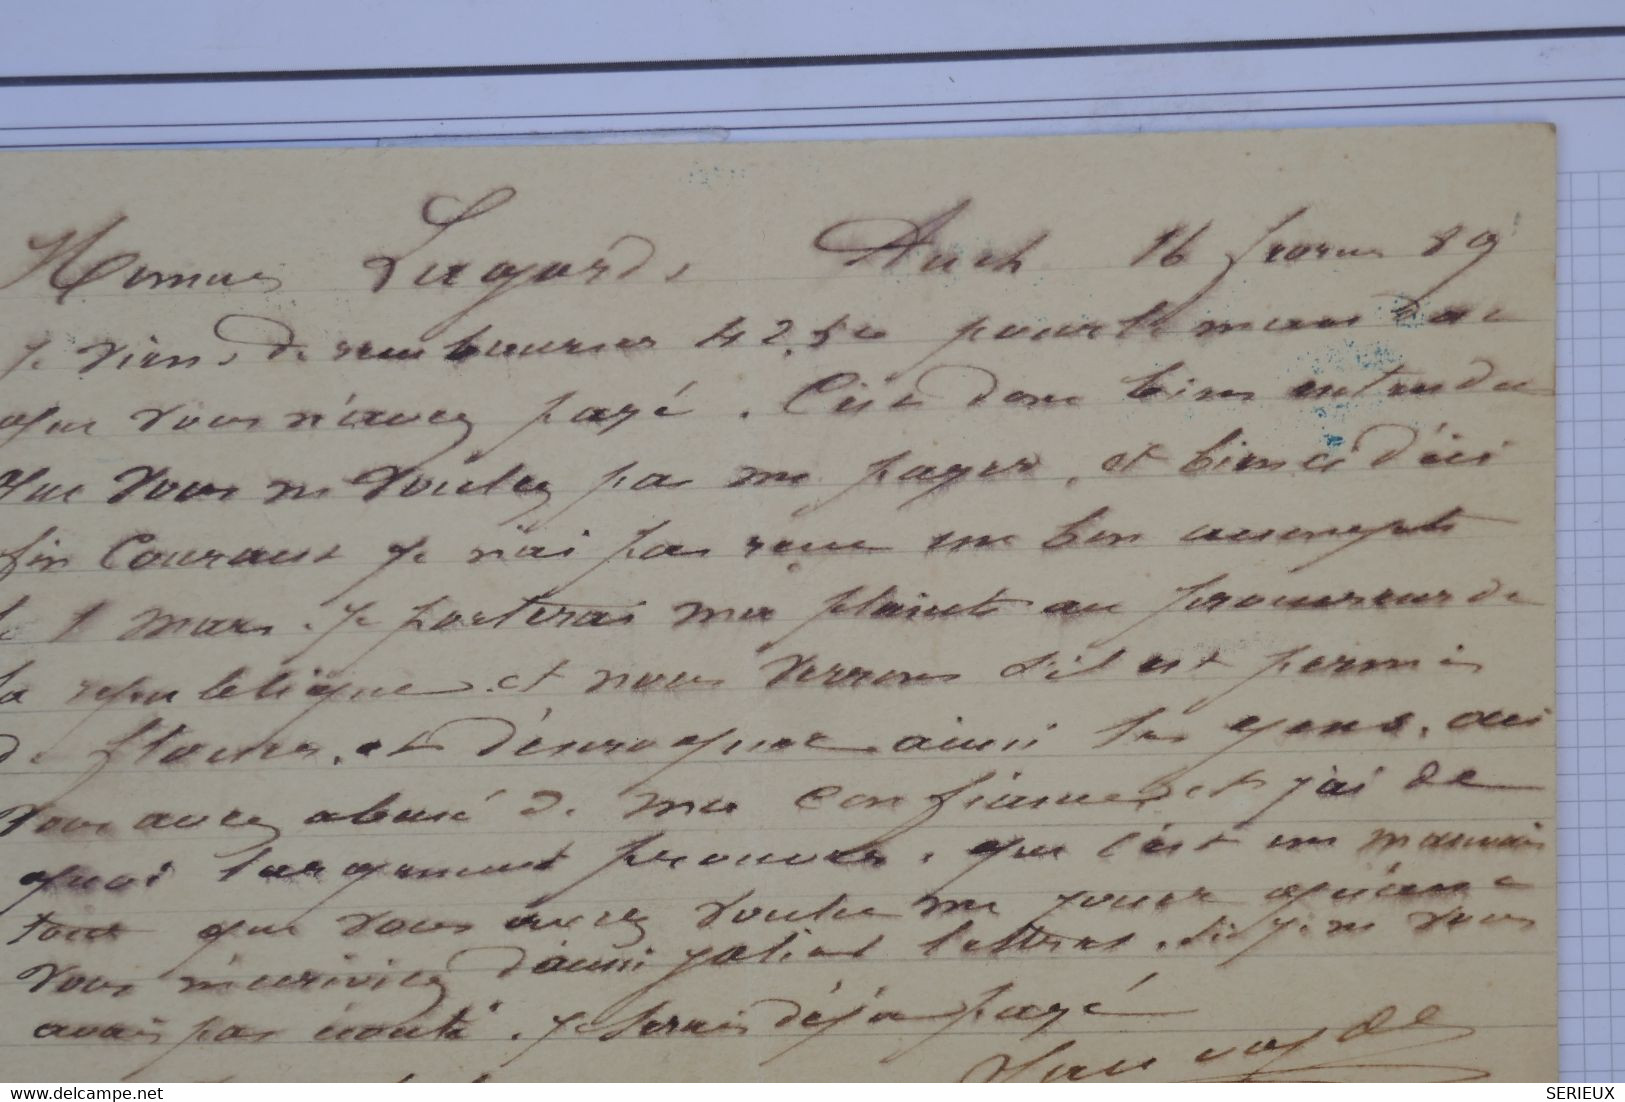 Lagarde Auch 16 février 89
je viens de rembourser 42,50 pour le mandat
que vous n'avez payé. C'est donc bien entendu
que vous ne voulez pas me payer, et bien si d'ici
fin courant je n'ai pas reçu un bon acompte
le 1 mars. je porterai ma plainte au procureur de
la republique et nous verrons s'il est permis
de flouer, et d'escroquer ainsi les gens. oui
vous avez abusé de ma confiance, et j'ai de
quoi largement prouver. que c'est un mauvais
tour que vous avez voulu me jouer
vous m'écriviez d'aussi jolies lettres. si je ne vous
avais pas écouté. je serais déjà payé
SERIEUX
www.delcampe.net